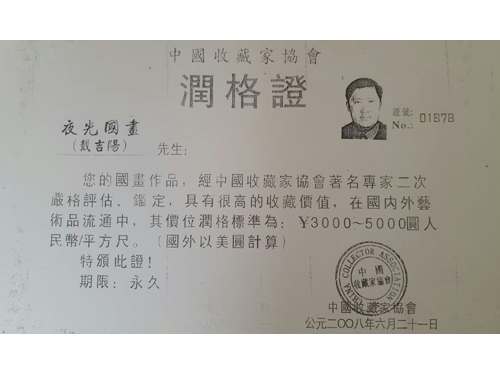 中國收藏家協會
潤格證
證號:
No.: 01878
夜光國畫
(戴吉陽) 先生:
您的國畫作品，經中國收藏家協會著名專家二次
嚴格評估、鑑定，具有很高的收藏價值，在國內外藝
術品流通中，其價位潤格標準為：¥3000~5000圓人
民幣/平方尺。（國外以美圓計算）
特頒此證！
期限：永久
CHINA COLLECTOR ASSOCIATION
中國
收藏家協會
中國收藏家協會
公元二〇〇八年六月二十一日